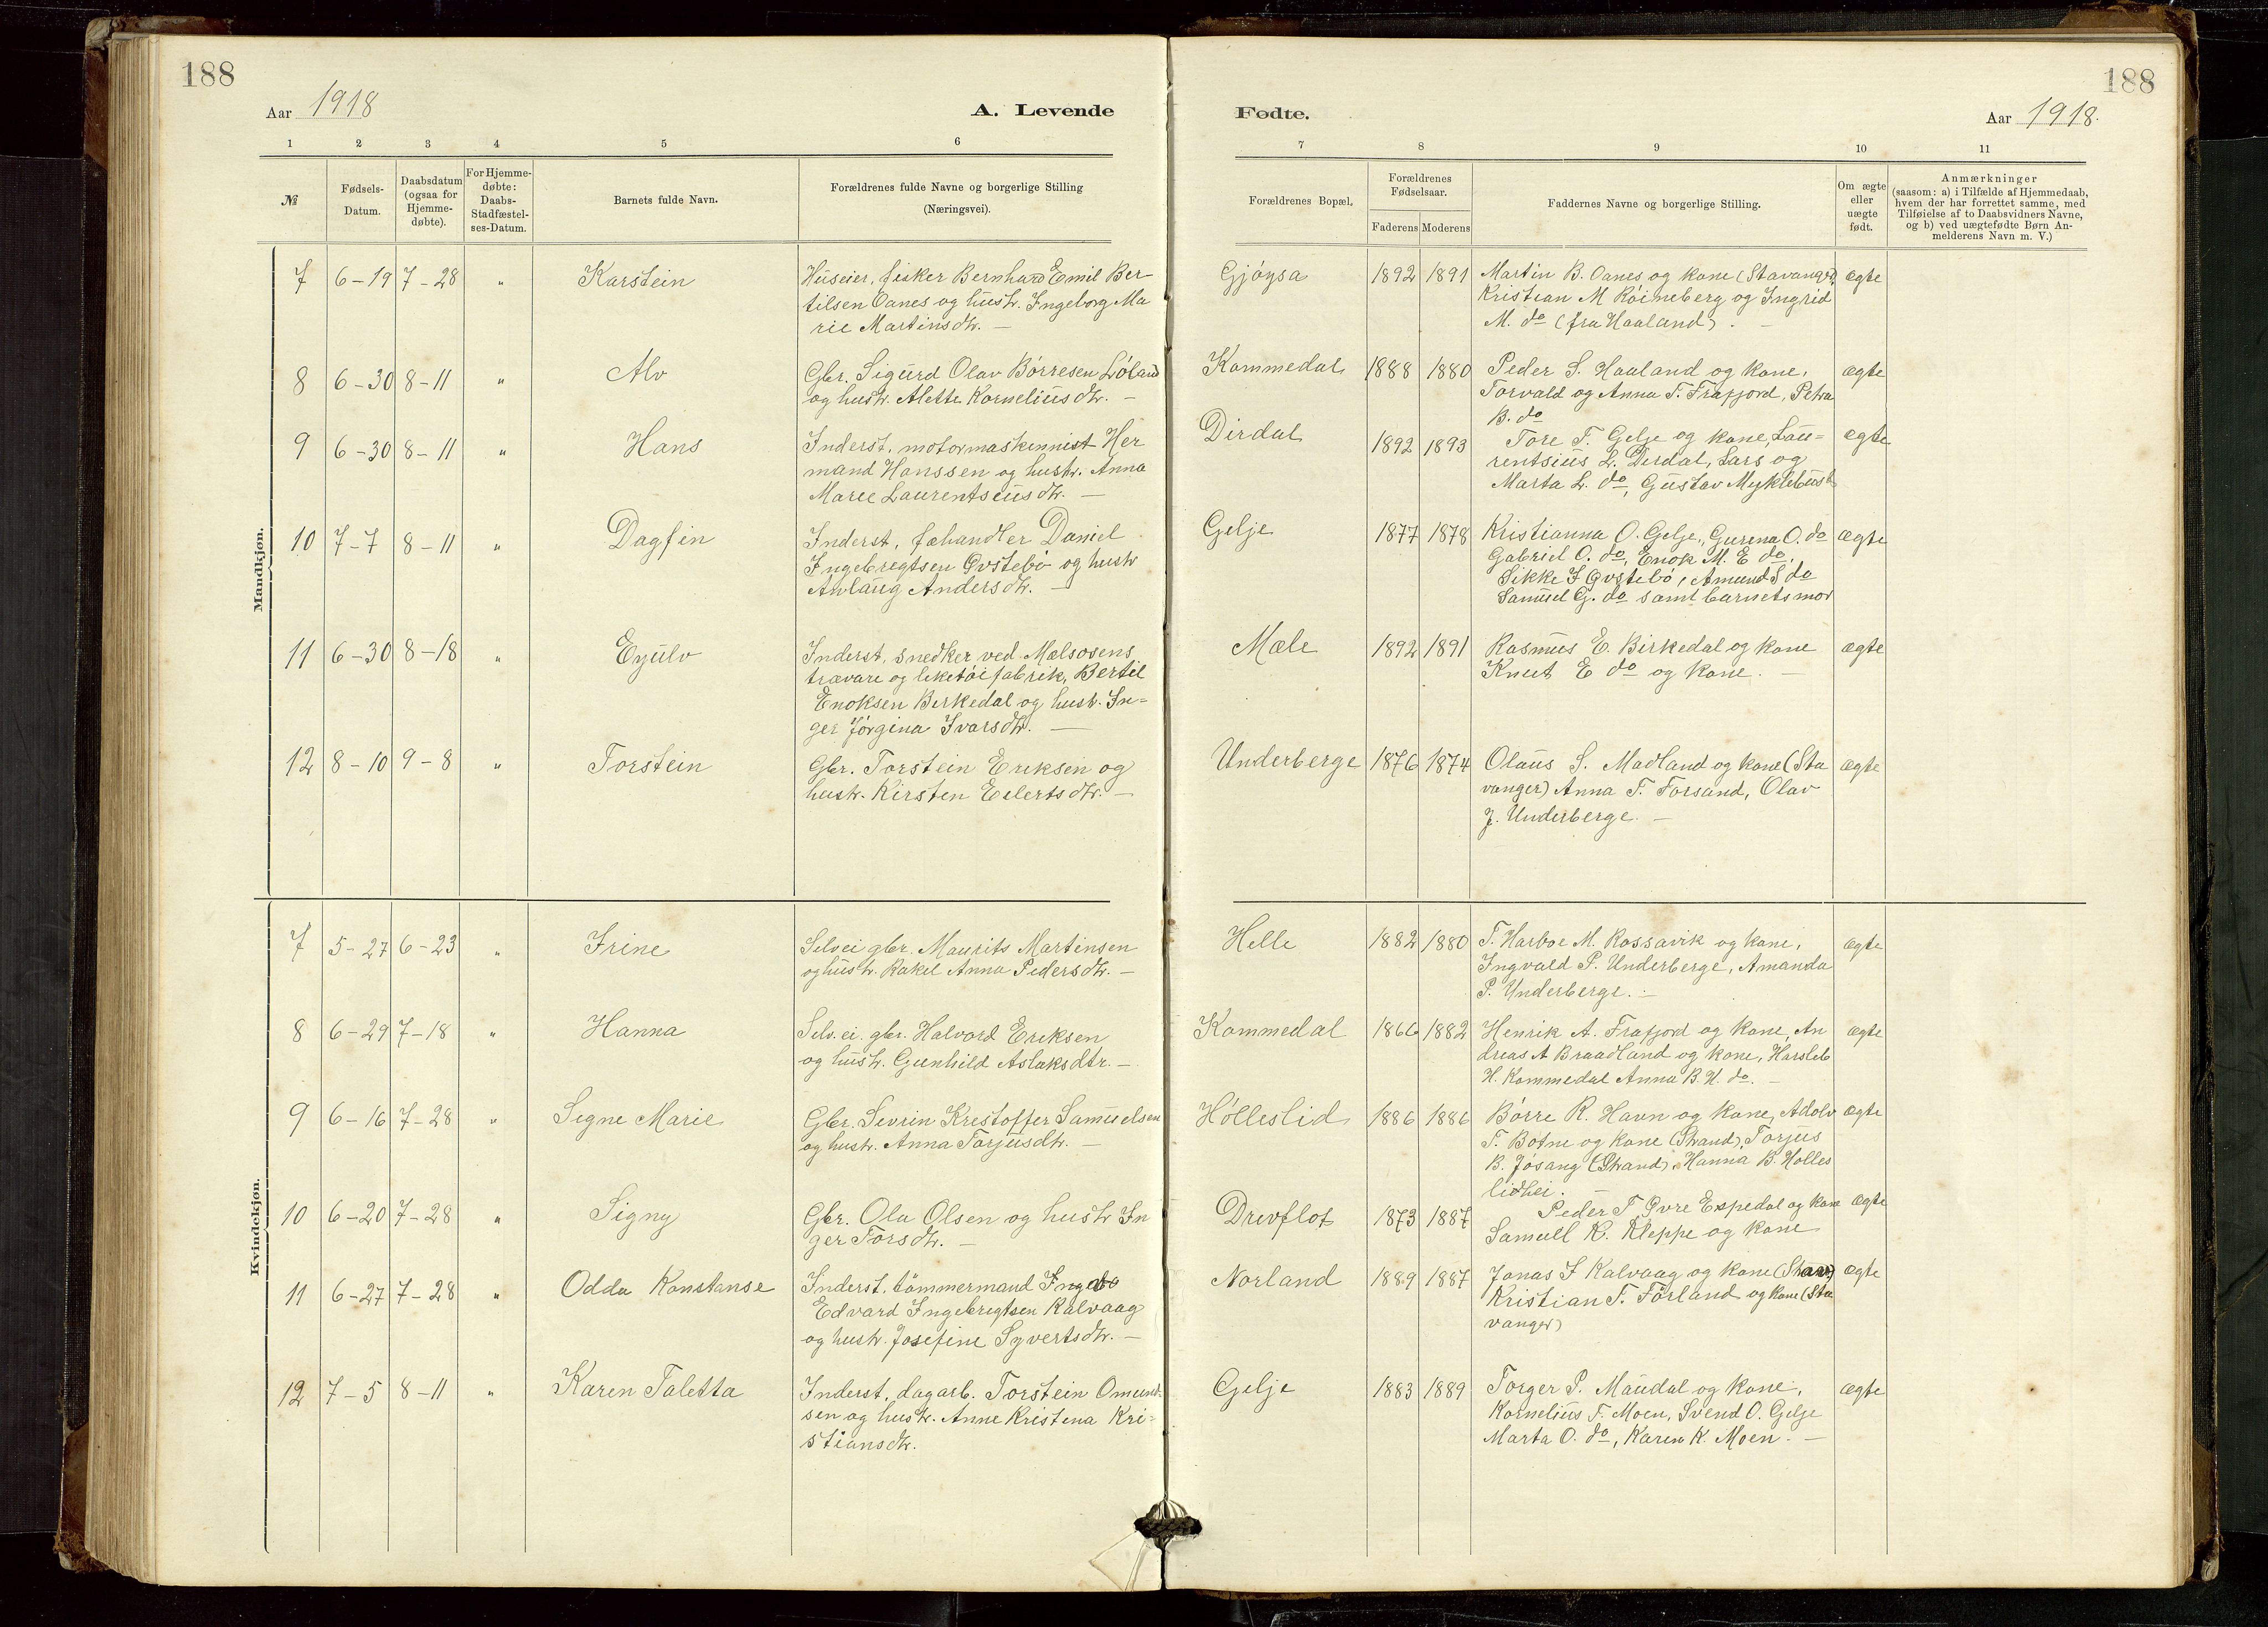 188
Aar 1918
A. Levende
1 2 3 4 5 6
№
Fødsels-
Datum.
Daabsdatum
(ogsaa for
Hjemme-
døbte).
For Hjemme-
døbte:
Daabs-
Stadfæstel-
ses-Datum.
Barnets fulde Navn.
Forældrenes fulde Navne og borgerlige Stilling
(Næringsvei).
Mandkjøn.
7 6-19 7-28 " Karstein
Huseier, fisker Bernhard Emil Ber-
tilsen Oanes og hustr. Ingeborg Ma
rie Martinsdtr. —
8 6-30 8-11 " Alv
Gbr. Sigurd Olav Børresen Løland
og hustr. Alette Korneliusdtr. —
9 6-30 8-11 " Hans
Inderst, motormaskinnist Her
mand Hanssen og hustr. Anna
Marie Laurentsiusdtr. —
10 7-7 8-11 " Dagfin
Inderst, fæhandler Daniel
Ingebregtsen Øvstebø og hustr
Anlaug Andersdtr. —
11 6-30 8-18 " Eyulv
Inderst, snedker ved Mælsosens
trævare og leketøifabrik, Bertil
Enoksen Birkedal og hustr. In-
ger Jørgina Ivarsdtr. —
12 8-10 9-8 " Torstein
Gbr. Torstein Eriksen og
hustr. Kirsten Eilertsdtr. —
Kvindekjøn.
7 5-27 6-23 " Irine
Selvei gbr. Maurits Martinsen
og hustr. Rakel Anna Pedersdtr. —
8 6-29 7-18 " Hanna
Selv.ei. gbr. Halvord Eriksen
og hustr. Gunhild Aslaksdtr. —
9 6-16 7-28 " Signe Marie
Gbr. Sevrin Kristoffer Samuelsen
og hustr. Anna Torjusdtr. —
10 6-20 7-28 " Signy
Gbr. Ola Olsen og hustr In
ger Torsdtr. —
11 6-27 7-28 " Odda Konstanse
Inderst, tømmermand
Edvard Ingebregtsen Kalvaag
og hustr. Josefine Syvertsdtr. —
12 7-5 8-11 " Karen Taletta
Inderst, dagarb. Torstein Omund-
sen og hustr. Anne Kristena Kri-
stiansdtr.
188
Fødte.
Aar 1918.
7 8 9 10 11
Forældrenes Bopæl.
Forældrenes
Fødselsaar.
Faderens Moderens
Faddernes Navne og borgerlige Stilling.
Om ægte
eller
uægte
født.
Anmærkninger
(saasom: a) i Tilfælde af Hjemmedaab,
hvem der har forrettet samme, med
Tilføielse af to Daabsvidners Navne,
og b) ved uægtefødte Børn An-
melderens Navn m. V.)
Gjøysa 1892 1891 Martin B. Oanes og kone (Stavanger), ægte
Kristian M Røineberg og Ingrid
M. do (fra Haaland). —
Kommedal 1888 1880 Peder S. Haaland og kone, ægte
Torvald og Anna T. Frafjord, Petra
B. do
Dirdal 1892 1893 Tore T. Gelje og kone, Lau- ægte
rentsius L. Dirdal, Lars og
Marta L. do, Gustav Myklebust
Gelje 1877 1878 Kristianna O. Gelje, Gurena O. do ægte
Gabriel O. do, Enok M. E do,
Sikke I Øvstebø, Amund S do
Samuel G. do samt barnets mor
Mæle 1892 1891 Rasmus E. Birkedal og kone ægte
Knut E do og kone. —
Underberge 1876 1874 Olaus S. Madland og kone (Sta ægte
vanger) Anna T. Forsand, Olav
J. Underberge. —
Helle 1882 1880 T. Harboe M. Rossavik og kone, ægte
Ingvald P. Underberge, Amanda
P. Underberge. —
Kommedal 1866 1882 Henrik A. Frafjord og kone, An ægte
dreas A Braadland og kone, Harsleb
H. Kommedal Anna B. H. do. —
Hølleslid 1886 1886 Børre R. Havn og kone, Adolv ægte
T. Botne og kone (Strand), Torjus
B. Jøsang (Strand), Hanna B. Hølles
lidhei. —
Drevflot 1873 1887 Peder T Øvre Espedal og kone ægte
Samuel K. Kleppe og kone
Norland 1889 1887 Jonas I Kalvaag og kone ægte
Kristian T. Førland og kone (Sta
vanger)
Gelje 1883 1889 Torger P. Maudal og kone, ægte
Kornelius T. Moen, Svend O. Gelje
Marta O. do, Karen K. Moen. —